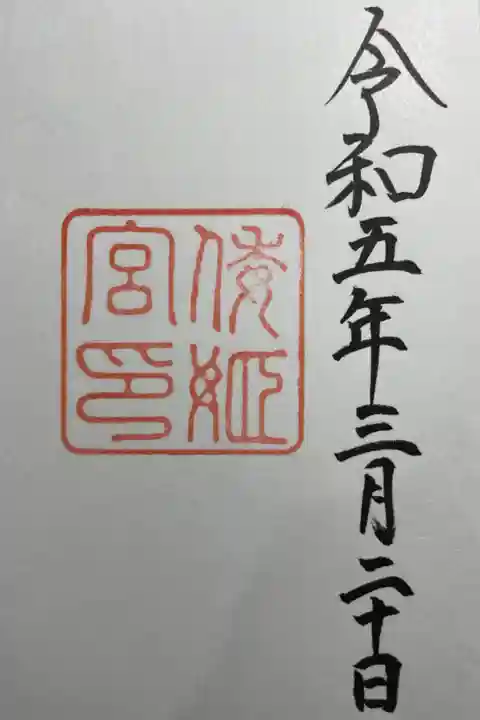 令和五年三月二十日
倭姫
宮印